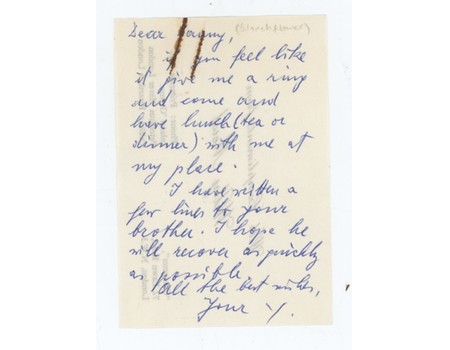 Dear Danny, (Blanchflower)
if you feel like
it give me a ring
and come and
have lunch (tea or
dinner) with me at
my place.
I have written a
few lines to your
brother. I hope he
will recover as quickly
as possible
all the best wishes,
Your